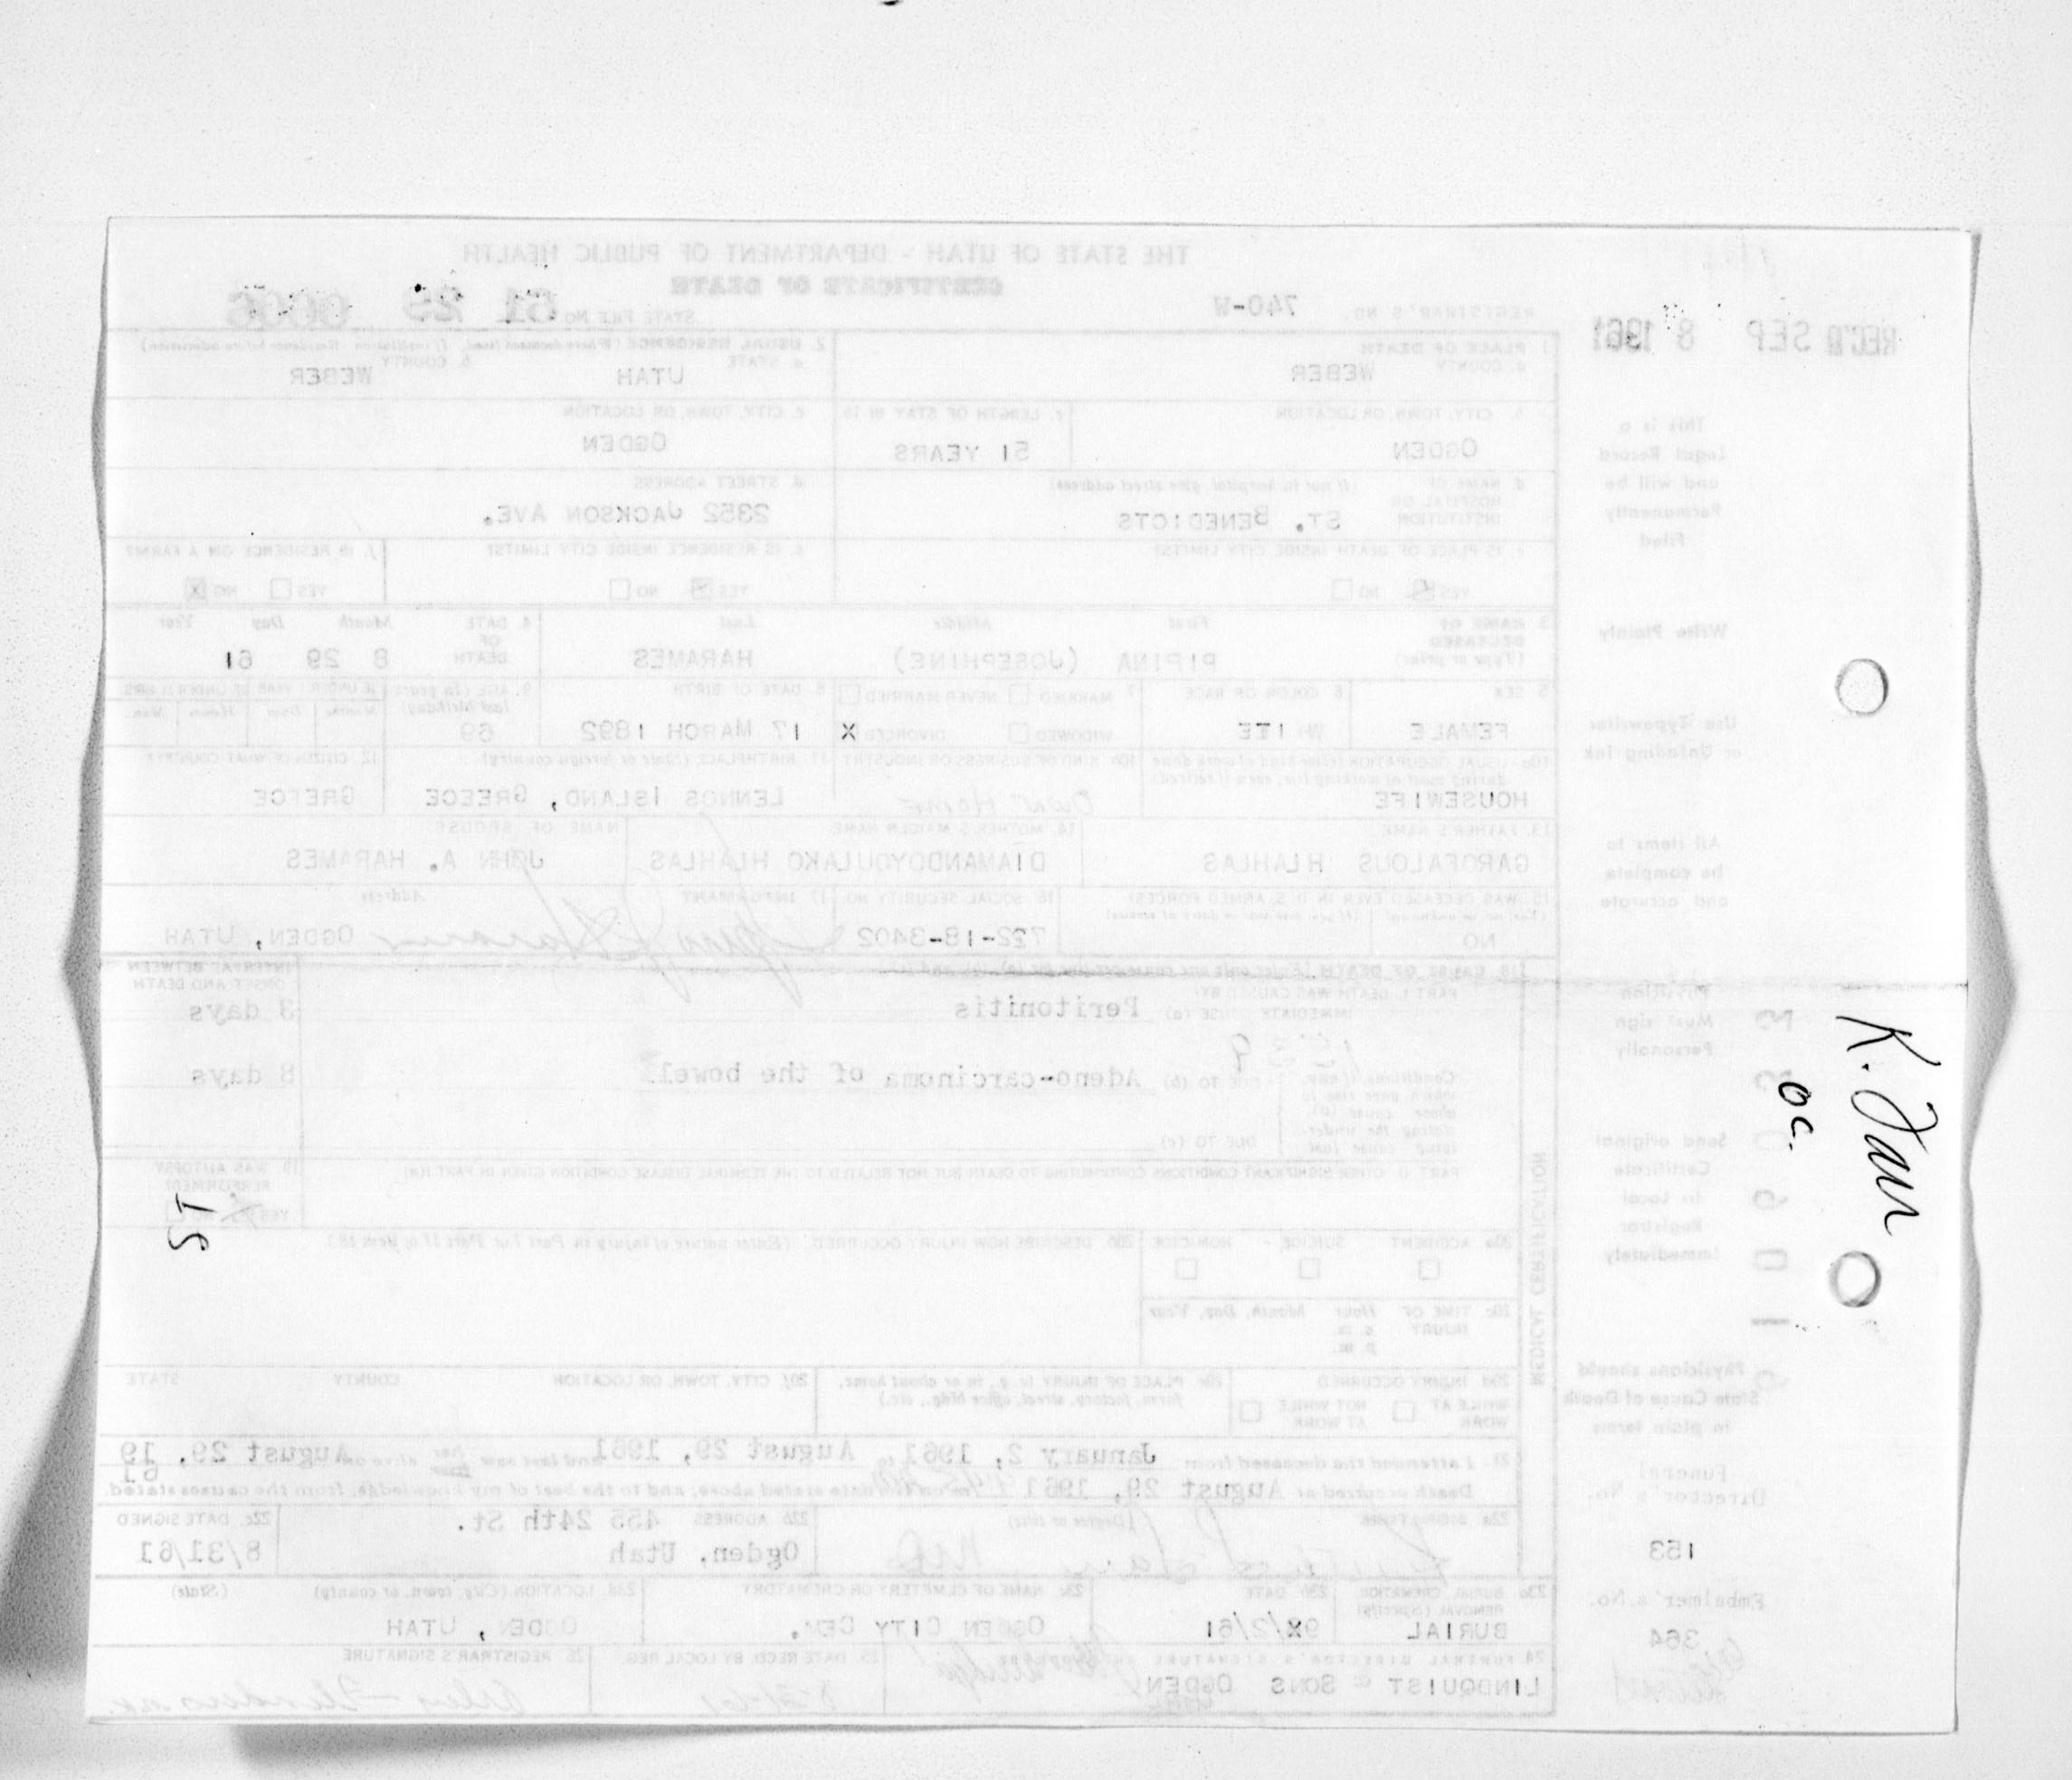 THE STATE OF UTAH - DEPARTMENT OF PUBLIC HEALTH
CERTIFICATE OF DEATH
REGISTRAR'S NO. 740-W STATE FILE NO. 61 29 0606
REC'D SEP 8 1961
1 PLACE OF DEATH
a. COUNTY WEBER
2. USUAL RESIDENCE (Where deceased lived. If institution: Residence before admission)
a. STATE UTAH b. COUNTY WEBER
b. CITY, TOWN, OR LOCATION OGDEN
c. LENGTH OF STAY IN 1b 51 YEARS
c. CITY, TOWN, OR LOCATION OGDEN
d. NAME OF HOSPITAL OR INSTITUTION (If not in hospital, give street address) ST. BENEDICTS
d. STREET ADDRESS 2352 JACKSON AVE.
e. IS PLACE OF DEATH INSIDE CITY LIMITS?
YES NO
e. IS RESIDENCE INSIDE CITY LIMITS?
YES X NO
f. IS RESIDENCE ON A FARM?
YES NO X
3 NAME OF DECEASED (Type or print) First Middle Last
PIPINA (JOSEPHINE) HARAMES
4. DATE OF DEATH Month Day Year
8 29 61
5 SEX FEMALE
6 COLOR OR RACE WHITE
7 MARRIED NEVER MARRIED
WIDOWED DIVORCED X
8 DATE OF BIRTH 17 MARCH 1892
9. AGE (In years last birthday) 69
IF UNDER 1 YEAR IF UNDER 24 HRS
Months Days Hours Min.
10a USUAL OCCUPATION (Give kind of work done during most of working life, even if retired)
HOUSEWIFE
10b KIND OF BUSINESS OR INDUSTRY
Own Home
11. BIRTHPLACE (State or foreign country)
LENNOS ISLAND, GREECE
12. CITIZEN OF WHAT COUNTRY?
GREECE
13. FATHER'S NAME
GAROFALOUS HLAHLAS
14. MOTHER'S MAIDEN NAME
DIAMANDOYOULAKO HLAHLAS
NAME OF SPOUSE
JOHN A. HARAMES
15. WAS DECEASED EVER IN U. S. ARMED FORCES?
NO
16. SOCIAL SECURITY NO.
722-18-3402
17 INFORMANT Address
OGDEN, UTAH
18 CAUSE OF DEATH
PART I. DEATH WAS CAUSED BY:
IMMEDIATE CAUSE (a) Peritonitis
INTERVAL BETWEEN ONSET AND DEATH
3 days
Conditions, if any, which gave rise to above cause (a), stating the underlying cause last
DUE TO (b) Adeno-carcinoma of the bowel.
8 days
DUE TO (c)
PART II OTHER SIGNIFICANT CONDITIONS CONTRIBUTING TO DEATH BUT NOT RELATED TO THE TERMINAL DISEASE CONDITION GIVEN IN PART I(a)
19 WAS AUTOPSY PERFORMED?
YES NO
MEDICAL CERTIFICATION
20a ACCIDENT SUICIDE HOMICIDE
20b DESCRIBE HOW INJURY OCCURRED. (Enter nature of injury in Part I or Part II of item 18.)
20c TIME OF INJURY Hour Month, Day, Year
a. m.
p. m.
20d INJURY OCCURRED
WHILE AT WORK NOT WHILE AT WORK
20e PLACE OF INJURY (e.g., in or about home, farm, factory, street, office bldg., etc.)
20f CITY, TOWN, OR LOCATION COUNTY STATE
21. I attended the deceased from January 2, 1961, to August 29, 1961 and last saw her alive on August 29, 1961
Death occurred at August 29, 1961 on the date stated above; and to the best of my knowledge, from the causes stated.
22a SIGNATURE (Degree or title) MD
22b ADDRESS 455 24th St.
Ogden, Utah
22c. DATE SIGNED
8/31/61
23a BURIAL, CREMATION REMOVAL (Specify)
BURIAL
23b DATE
23c NAME OF CEMETERY OR CREMATORY
OGDEN CITY CEM.
23d LOCATION (City, town, or county) (State)
OGDEN, UTAH
24 FUNERAL DIRECTOR'S SIGNATURE
LINDQUIST & SONS OGDEN
25 DATE RECD. BY LOCAL REG.
8-31-61
26 REGISTRAR'S SIGNATURE
This is a
Legal Record
and will be
Permanently
Filed
Write Plainly
Use Typewriter
or Unfading Ink
All items to
be complete
and accurate
Physician
Must sign
Personally
Send original
Certificate
to Local
Registrar
Immediately
Physicians should
State Cause of Death
in plain terms
Funeral
Director's No.
153
Embalmer's No.
364
oc.
IS